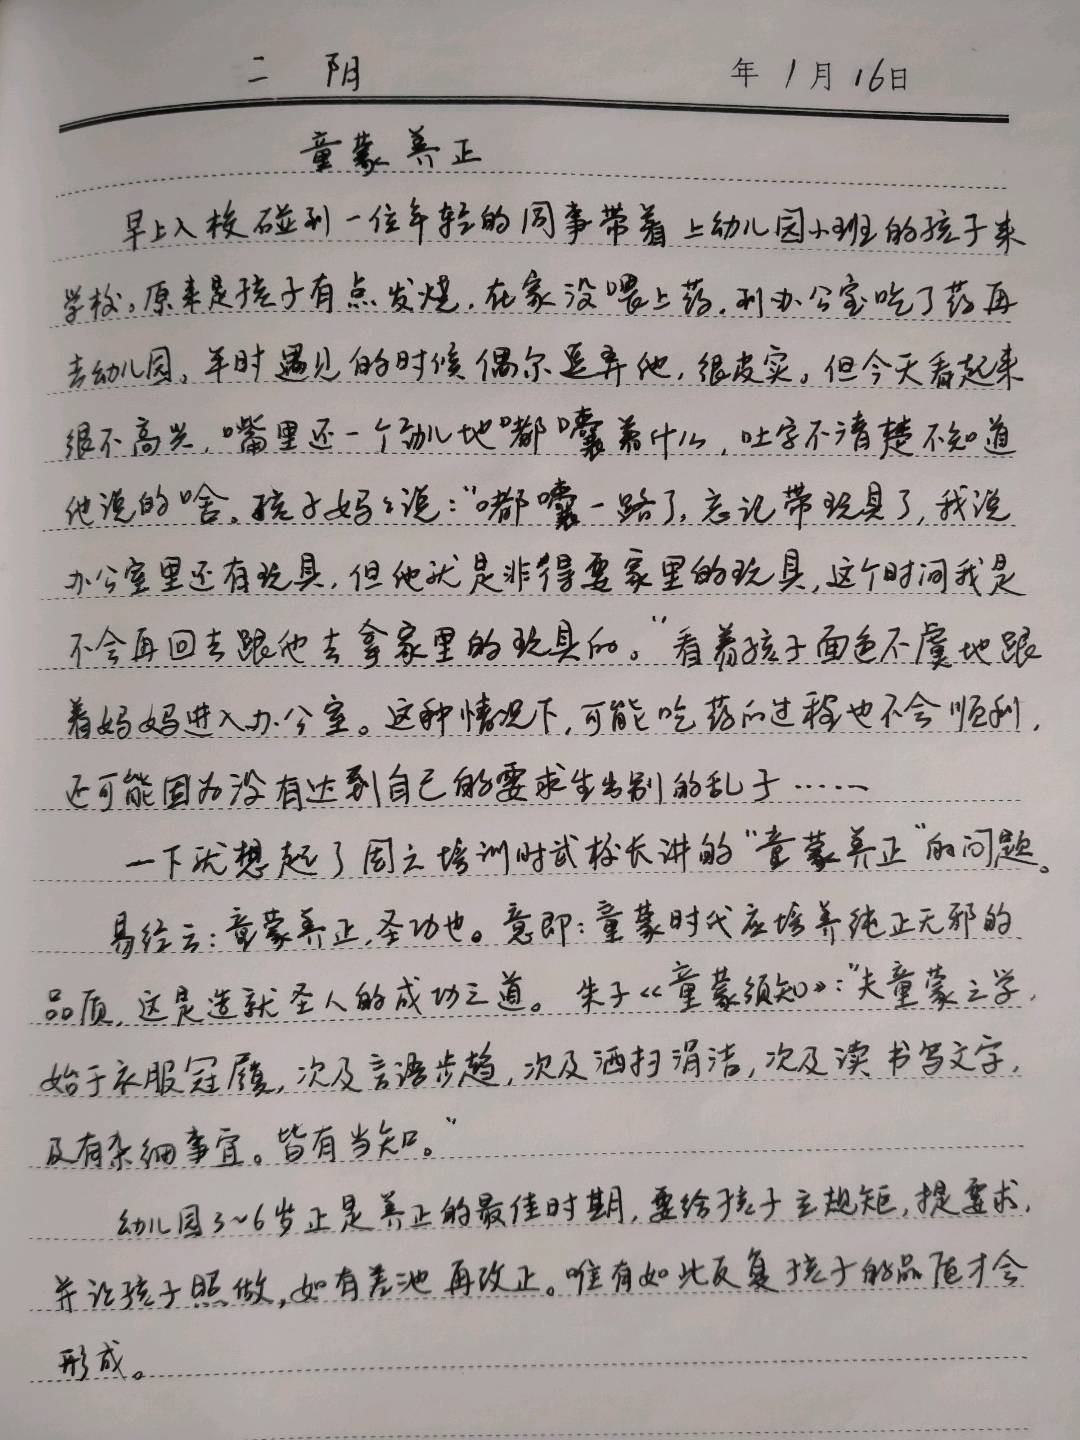 二 阴 年1月16日
童蒙养正
早上入校碰到一位年轻的同事带着上幼儿园小班的孩子来
学校。原来是孩子有点发烧,在家没喂上药,到办公室吃了药再
去幼儿园。平时遇见的时候偶尔逗弄他,很皮实。但今天看起来
很不高兴,嘴里还一个劲儿地嘟囔着什么,吐字不清楚不知道
他说的啥。孩子妈妈说:“嘟囔一路了,忘记带玩具了,我说
办公室里还有玩具,但他就是非得要家里的玩具,这个时间我是
不会再回去跟他去拿家里的玩具的。”看着孩子面色不虞地跟
着妈妈进入办公室。这种情况下,可能吃药的过程也不会顺利,
还可能因为没有达到自己的要求生出别的乱子……
一下就想起了周六培训时武校长讲的“童蒙养正”的问题。
易经云:童蒙养正,圣功也。意即:童蒙时代应培养纯正无邪的
品质,这是造就圣人的成功之道。朱子《童蒙须知》:“夫童蒙之学,
始于衣服冠履,次及言语步趋,次及洒扫涓洁,次及读书写文字,
及有杂细事宜。皆有当知。”
幼儿园3~6岁正是养正的最佳时期,要给孩子立规矩,提要求,
并让孩子照做,如有差池再改正。唯有如此反复孩子的品质才会
形成。